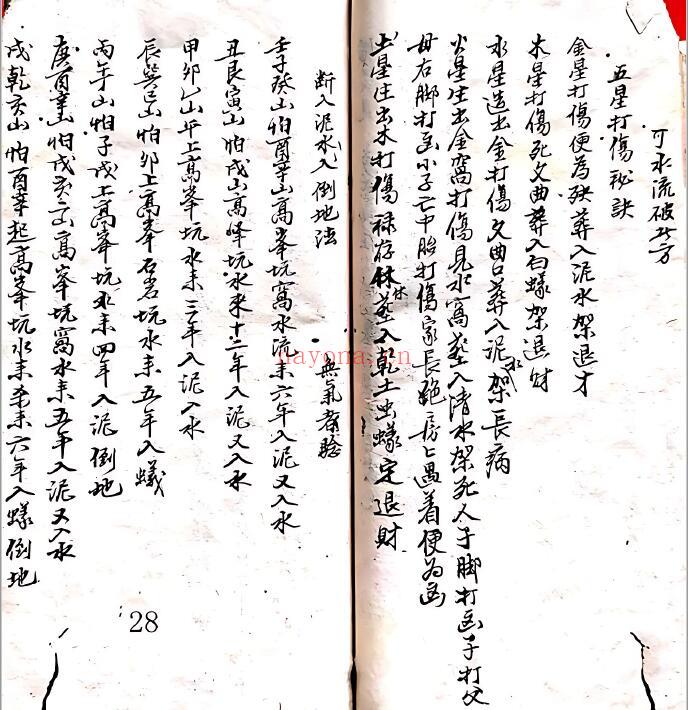 可水流破此方
五星打傷秘訣
金星打傷便為殃葬入泥水架退才
木星打傷死文曲葬入白蟻架退財
水星造出金打傷文曲口葬入泥水架長病
火星生出金窩打傷見水窩葬入清水架死人子脚打凶子打父
母右脚打凶小子亡中胎打傷家長絶房上遇着便為凶
土星生出木打傷禄存休葬入乾土虫蟻定退財
無氣者驗
断入泥水入倒地法
壬子癸山怕酉辛山高峯坑窩水流来六年入泥又入水
丑艮寅山怕戌山高峰坑水来十二年入泥又入水
甲卯乙山平上高峯坑水来三年入泥入水
辰巽巳山怕卯上高峯石岩坑水来五年入蟻
丙午山怕子戌上高峯坑水来四年入泥倒地
庚酉辛山怕戌亥方高峯坑窩水来五年入泥又入水
戌乾亥山怕酉辛起高峯坑水来六年入蟻倒地
28
nayona.cn